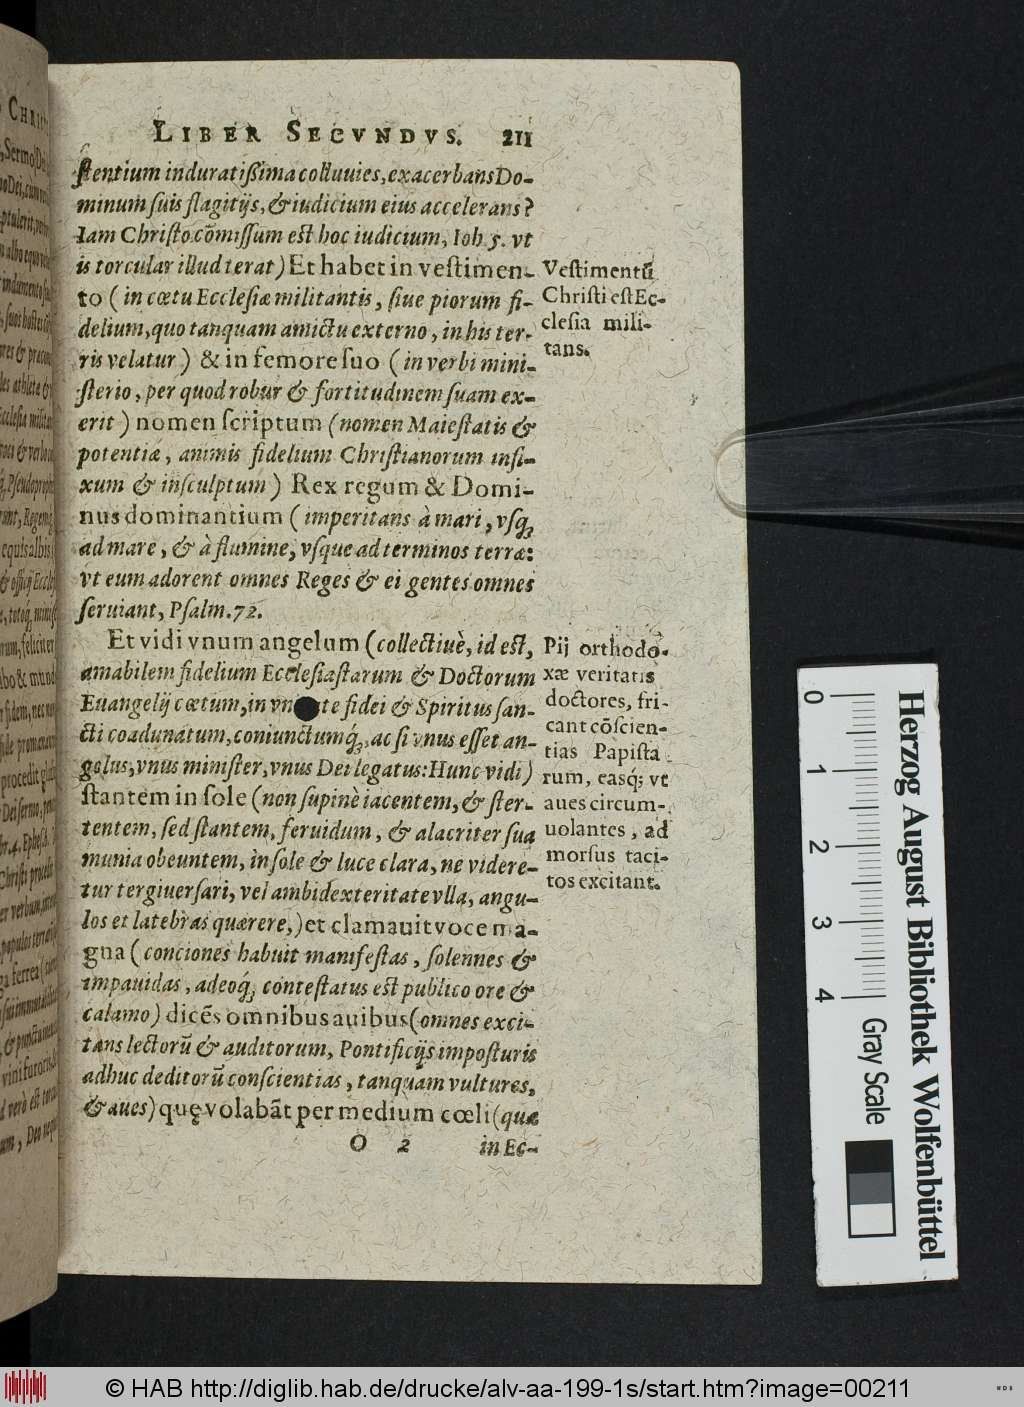 LIBER SECVNDVS. 211
ſtentium induratißima colluuies, exacerbans Do-
minum ſuis flagitijs, & iudicium eius accelerans?
Iam Chriſto cõmiſſum eſt hoc iudicium, Ioh. 5. vt
is torcular illud terat) Et habet in veſtimen-
to (in cœtu Eccleſiæ militantis, ſiue piorum fi-
delium, quo tanquam amictu externo, in his ter-
ris velatur) & in femore ſuo (in verbi mini-
ſterio, per quod robur & fortitudinem ſuam ex-
erit) nomen ſcriptum (nomen Maieſtatis &
potentiæ, animis fidelium Chriſtianorum infi-
xum & inſculptum) Rex regum & Domi-
nus dominantium (imperitans à mari, vſq;
ad mare, & à flumine, vſque ad terminos terræ:
vt eum adorent omnes Reges & ei gentes omnes
ſeruiant, Pſalm. 72.
Et vidi vnum angelum (collectiuè, id eſt,
amabilem fidelium Eccleſiaſtarum & Doctorum
Euangelij cœtum, in vn te fidei & Spiritus ſan-
cti coadunatum, coniunctumq;, ac ſi vnus eſſet an-
gelus, vnus miniſter, vnus Dei legatus: Hunc vidi)
ſtantem in ſole (non ſupinè iacentem, & ſter-
tentem, ſed ſtantem, feruidum, & alacriter ſua
munia obeuntem, in ſole & luce clara, ne videre-
tur tergiuerſari, vel ambidexteritate vlla, angu-
los et latebras quærere,) et clamauit voce ma-
gna (conciones habuit manifeſtas, ſolennes &
impauidas, adeoq; conteſtatus eſt publico ore &
calamo) dicẽs omnibus auibus (omnes exci-
tans lectorũ & auditorum, Pontificijs impoſturis
adhuc deditorũ conſcientias, tanquam vultures,
& aues) quę volabãt per medium cœli (quæ
O 2 in Ec-
Veſtimentũ
Chriſti eſt Ec-
cleſia mili-
tans.
Pij orthodo-
xæ veritatis
doctores, fri-
cant cõſcien-
tias Papiſta
rum, easq; vt
aues circum-
uolantes, ad
morſus taci-
tos excitant.
0 1 2 3 4
Gray Scale
Herzog August Bibliothek Wolfenbüttel
© HAB http://diglib.hab.de/drucke/alv-aa-199-1s/start.htm?image=00211